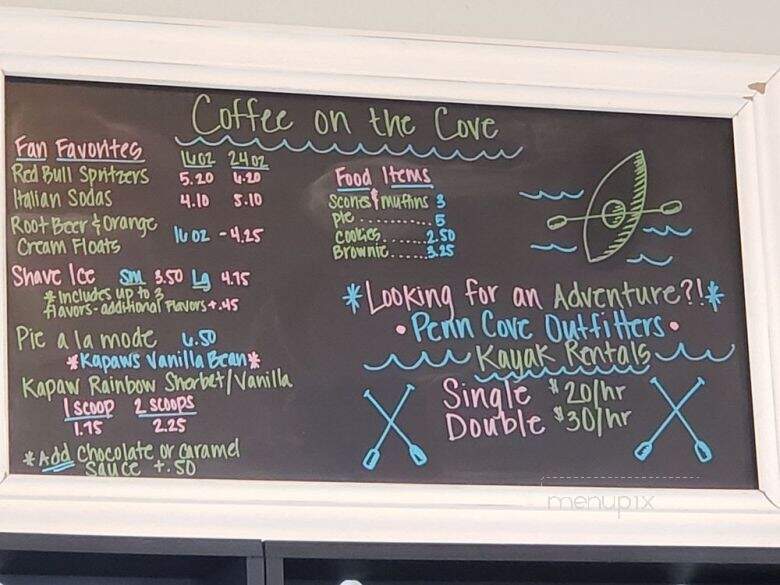 Coffee on the Cove
Fan Favorites
16oz 24oz
Red Bull Spritzers 5.20 6.20
Italian Sodas 4.10 5.10
Root Beer & Orange
Cream Floats 16oz - 4.25
Shave Ice Sm 3.50 Lg 4.75
*Includes up to 3
flavors- additional flavors +.45
Pie a la mode 6.50
*Kapaws Vanilla Bean*
Kapaw Rainbow Sherbet/Vanilla
1 scoop 2 scoops
1.75 2.25
*Add Chocolate or Caramel
Sauce +.50
Food Items
Scones & muffins 3
Pie .......... 5
Cookies ....... 2.50
Brownie ...... 3.25
*Looking for an Adventure?!*
• Penn Cove Outfitters •
Kayak Rentals
Single $20/hr
Double $30/hr
menupix